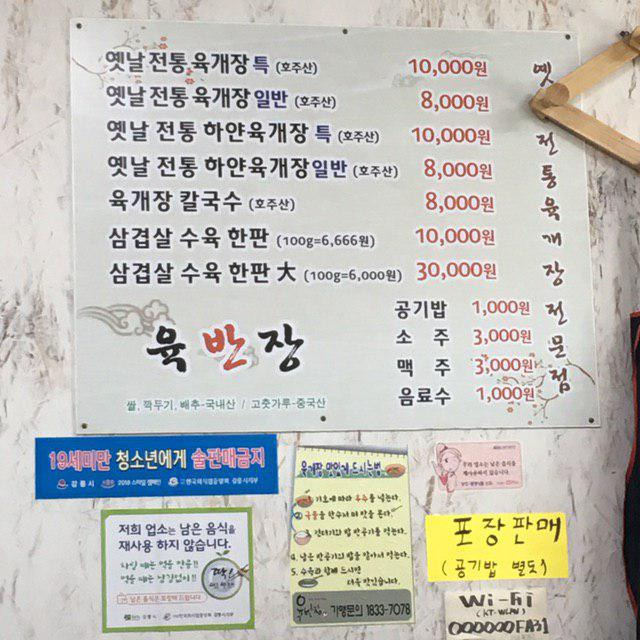 옛날 전통 육개장 특 (호주산) 10,000원
옛날 전통 육개장 일반 (호주산) 8,000원
옛날 전통 하얀육개장 특 (호주산) 10,000원
옛날 전통 하얀육개장 일반 (호주산) 8,000원
육개장 칼국수 (호주산) 8,000원
삼겹살 수육 한판 (100g=6,666원) 10,000원
삼겹살 수육 한판 大 (100g=6,000원) 30,000원
공기밥 1,000원
소 주 3,000원
맥 주 3,000원
음료수 1,000원
육반장
쌀, 깍두기, 배추-국내산 / 고춧가루-중국산
옛 전통육개장전문점
19세미만 청소년에게 술판매금지
강릉시 2018 스마일 캠페인 한국외식업중앙회 강릉시지부
저희 업소는 남은 음식을
재사용 하지 않습니다.
남은 음식은 포장해 드립니다
육개장 맛있게 드시는법
1. 기호에 따라 후추를 넣는다.
2. 국물을
3. 건더기와 밥 반공기를 먹는다.
4. 남은 반공기의 밥을 말아서 먹는다.
5. 수육과 함께 드시면
더욱 맛있습니다.
가맹문의 1833-7078
우리 업소는 남은 음식을
재사용하지 않습니다
포장판매
(공기밥 별도)
Wi-fi
(KT-WLAN)
000000FA31